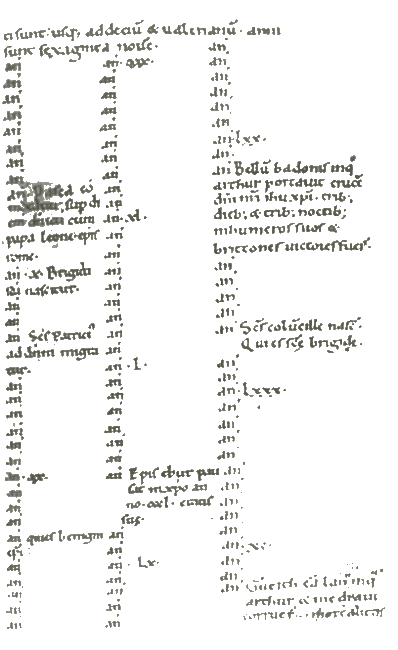 ti sunt usq; ad deciū & ualerianū. anni
sunt sexaginta nouē.
an
an
an
an
an
an
an
an Pasca cō
mutatur sup di
em dn̄icū cum
papa leone epis
rome.
an .x. Brigida
sc̄a nascitur.
an
an
an Sc̄s Patrici'
ad dn̄m migra
tur.
an
an
an
an
an
an
an .xx.
an
an
an
an quies benigni
epī.
an
an
an
an
an
an .xxx.
an
an
an
an
an
an
an
an
an
an .xl.
an
an
an
an
an
an
an
an
an .l.
an
an
an
an
an
an
an Epis ebur pau
sat in xpo an
no .cccl. etatis
suę.
an
an
an .lx.
an
an
an
an
an
an
an
an
an
an
an .lxx.
an
an Bellū badonis inq̄
arthur portauit crucē
dn̄i nr̄i ihu xp̄i. trib;
dieb; & trib; noctib;
in humeros suos &
brittones uictores fuer̄.
an
an
an
an
an Sc̄s colūcille nasc̄.
Quies sc̄ę brigidę.
an
an
an .lxxx.
an
an
an
an
an
an
an
an
an
an .xc.
an
an
an Gueith cā lann inq̄
arthur & medraut
corruer̄.